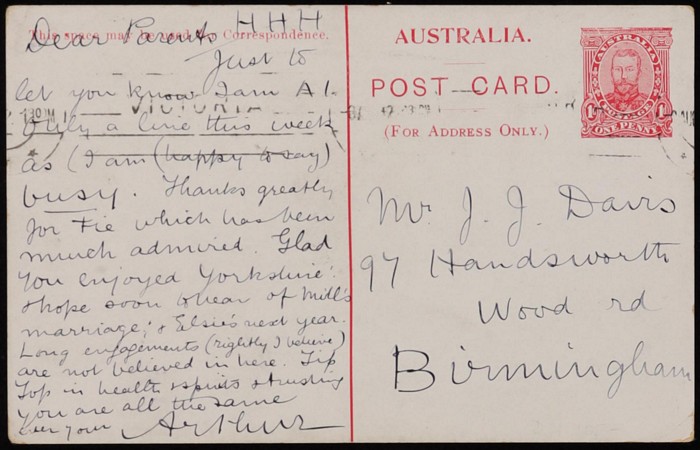 This space may be used for Correspondence.
HHH
Dear Parents
Just to
let you know I am A1.
VICTORIA
Only a line this week
as (I am (happy to say)
busy. Thanks greatly
for Tie which has been
much admired. Glad
you enjoyed Yorkshire.
I hope soon to hear of Mill's
marriage; & Elsie's next year.
Long engagements (rightly I believe)
are not believed in here. Tip
Top in health & spirits & trusting
you are all the same
Ever your Arthur
AUSTRALIA.
POST CARD.
(FOR ADDRESS ONLY.)
AUSTRALIA
POSTAGE
ONE PENNY
Mr J. J. Davis
97 Handsworth
Wood rd
Birmingham